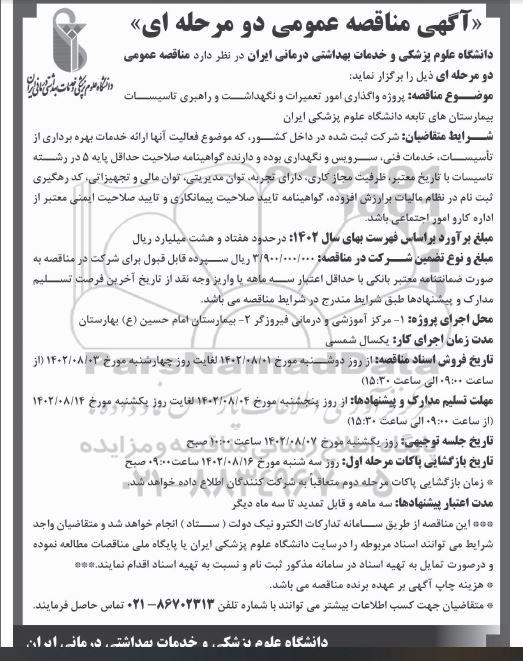 «آگهی مناقصه عمومی دو مرحله ای»
دانشگاه علوم پزشکی و خدمات بهداشتی درمانی ایران
دانشگاه علوم پزشکی و خدمات بهداشتی درمانی ایران در نظر دارد مناقصه عمومی
دو مرحله ای ذیل را برگزار نماید:
موضـوع مناقصه: پروژه واگذاری امور تعمیرات و نگهداشـت و راهبری تاسیسـات
بیمارستان های تابعه دانشگاه علوم پزشکی ایران
شـرایط متقاضیان: شرکت ثبت شده در داخل کشـور، که موضوع فعالیت آنها ارائه خدمات بهره برداری از
تأسیسـات، خدمات فنی، سـرویس و نگهداری بوده و دارنده گواهینامه صلاحیت حداقل پایه ۵ در رشـته
تاسیسات با تاریخ معتبر، ظرفیت مجاز کاری، دارای تجربه، توان مدیریتی، توان مالی و تجهیزاتی، کد رهگیری
ثبت نام در نظام مالیات برارزش افزوده، گواهینامه تایید صلاحیت پیمانکاری و تایید صلاحیت ایمنی معتبر از
اداره کارو امور اجتماعی باشد.
مبلغ برآورد براساس فهرست بهای سال ۱۴۰۲: درحدود هفتاد و هشت میلیارد ریال
مبلغ و نوع تضمین شـرکت در مناقصه: ۳/۹۰۰/۰۰۰/۰۰۰ ریال سـپرده قابل قبول برای شرکت در مناقصه به
صورت ضمانتنامه معتبر بانکی با حداقل اعتبار سـه ماهه یا واریز وجه نقد از تاریخ آخرین فرصت تسـلیم
مدارک و پیشنهادها طبق شرایط مندرج در شرایط مناقصه می باشد.
محل اجرای پروژه: ۱- مرکز آموزشی و درمانی فیروزگر ۲- بیمارستان امام حسین (ع) بهارستان
مدت زمان اجرای کار: یکسال شمسی
تاریخ فروش اسناد مناقصه: از روز دوشـنبه مورخ ۱۴۰۲/۰۸/۰۱ لغایت روز چهارشنبه مورخ ۱۴۰۲/۰۸/۰۳ (از
ساعت ۰۹:۰۰ الی ساعت ۱۵:۳۰)
مهلت تسلیم مدارک و پیشنهادها: از روز پنجشنبه مورخ ۱۴۰۲/۰۸/۰۴ لغایت روز یکشنبه مورخ ۱۴۰۲/۰۸/۱۴
(از ساعت ۰۹:۰۰ الی ساعت ۱۵:۳۰)
تاریخ جلسه توجیهی: روز یکشنبه مورخ ۱۴۰۲/۰۸/۰۷ ساعت ۱۰:۰۰ صبح
تاریخ بازگشایی پاکات مرحله اول: روز سه شنبه مورخ ۱۴۰۲/۰۸/۱۶ ساعت ۰۹:۰۰ صبح
* زمان بازگشایی پاکات مرحله دوم متعاقباً به شرکت کنندگان اطلاع داده خواهد شد.
مدت اعتبار پیشنهادها: سه ماهه و قابل تمدید تا سه ماه دیگر
*** این مناقصه از طریق سـامانه تدارکات الکترونیک دولت (سـتاد) انجام خواهد شد و متقاضیان واجد
شرایط می توانند اسناد مربوطه را درسایت دانشگاه علوم پزشکی ایران یا پایگاه ملی مناقصات مطالعه نموده
و درصورت تمایل به تهیه اسناد در سامانه مذکور ثبت نام و نسبت به تهیه اسناد اقدام نمایند.***
* هزینه چاپ آگهی بر عهده برنده مناقصه می باشد.
* متقاضیان جهت کسب اطلاعات بیشتر می توانند با شماره تلفن ۸۶۷۰۲۳۱۳-۰۲۱ تماس حاصل فرمایند.
دانشگاه علوم پزشکی و خدمات بهداشتی درمانی ایران